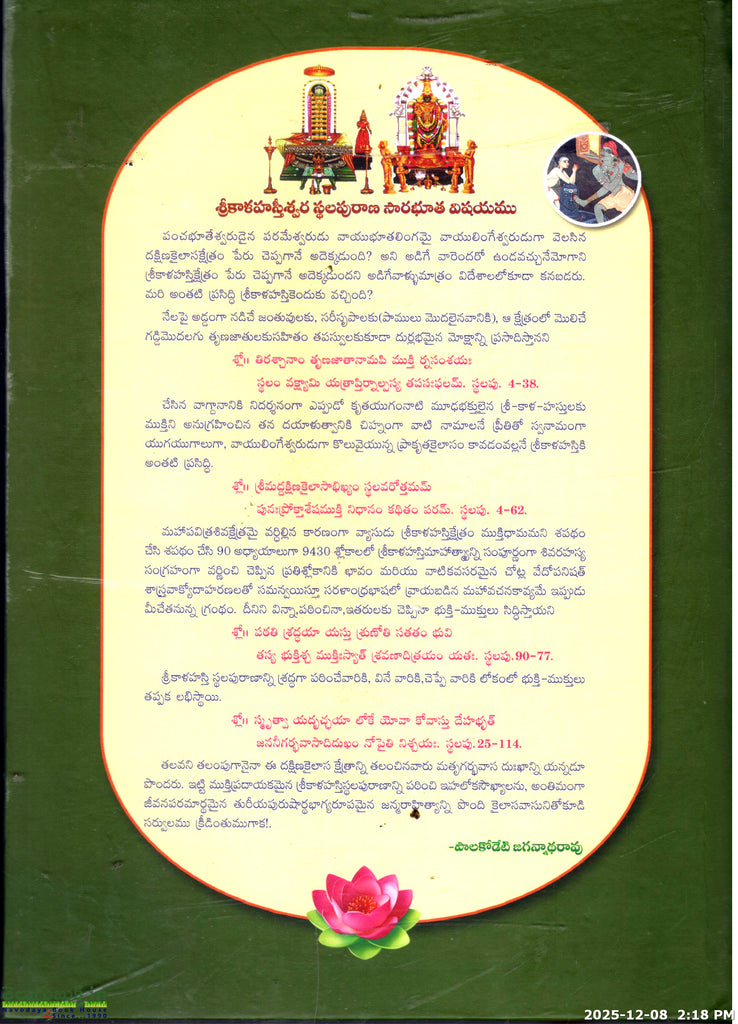 శ్రీకాళహస్తీశ్వర స్థలపురాణ సారభూత విషయము
పంచభూతేశ్వరుడైన పరమేశ్వరుడు వాయుభూతలింగమై వాయులింగేశ్వరుడుగా వెలసిన
దక్షిణకైలాసక్షేత్రం పేరు చెప్పగానే అదెక్కడుంది? అని అడిగే వారెందరో ఉండవచ్చునేమోగాని
శ్రీకాళహస్తిక్షేత్రం పేరు చెప్పగానే అదెక్కడుందని అడిగేవాళ్ళుమాత్రం విదేశాలలోకూడా కనబడరు.
మరి అంతటి ప్రసిద్ధి శ్రీకాళహస్తికెందుకు వచ్చింది?
నేలపై అడ్డంగా నడిచే జంతువులకు, సరీసృపాలకు(పాములు మొదలైనవానికి), ఆ క్షేత్రంలో మొలిచే
గడ్డిమొదలగు తృణజాతులకుసహితం తపస్వులకుకూడా దుర్లభమైన మోక్షాన్ని ప్రసాదిస్తానని
శ్లో॥ తిరశ్చానాం తృణజాతానామపి ముక్తి ర్నసంశయః
స్థలం వక్ష్యామి యత్రాప్తిర్నాల్పస్య తపసఃఫలమ్. స్థలపు. 4-38.
చేసిన వాగ్దానానికి నిదర్శనంగా ఎప్పుడో కృతయుగంనాటి మూఢభక్తులైన శ్రీ-కాళ-హస్తులకు
ముక్తిని అనుగ్రహించిన తన దయాళుత్వానికి చిహ్నంగా వాటి నామాలనే ప్రీతితో స్వనామంగా
యుగయుగాలుగా, వాయులింగేశ్వరుడుగా కొలువైయున్న ప్రాకృతకైలాసం కావడంవల్లనే శ్రీకాళహస్తికి
అంతటి ప్రసిద్ధి.
శ్లో॥ శ్రీమద్దక్షిణకైలాసాభిఖ్యం స్థలవరోత్తమమ్
పునఃప్రోక్తాశేషముక్తి నిధానం కథితం పరమ్. స్థలపు. 4-62.
మహాపవిత్రశివక్షేత్రమై వర్ధిల్లిన కారణంగా వ్యాసుడు శ్రీకాళహస్తిక్షేత్రం ముక్తిధామమని శపథం
చేసి శపథం చేసి 90 అధ్యాయాలుగా 9430 శ్లోకాలలో శ్రీకాళహస్తిమాహాత్మ్యాన్ని సంపూర్ణంగా శివరహస్య
సంగ్రహంగా వర్ణించి చెప్పిన ప్రతిశ్లోకానికి భావం మరియు వాటికవసరమైన చోట్ల వేదోపనిషత్
శాస్త్రవాక్యోదాహరణలతో సమన్వయిస్తూ సరళాంధ్రభాషలో వ్రాయబడిన మహావచనకావ్యమే ఇప్పుడు
మీచేతనున్న గ్రంథం. దీనిని విన్నా,పఠించినా,ఇతరులకు చెప్పినా భుక్తి-ముక్తులు సిద్ధిస్తాయని
శ్లో॥ పఠతి శ్రద్ధయా యస్తు శ్రుణోతి సతతం భువి
తస్య భుక్తిశ్చ ముక్తిఃస్యాత్ శ్రవణాదిత్రయం యతః. స్థలపు.90-77.
శ్రీకాళహస్తి స్థలపురాణాన్ని శ్రద్ధగా పఠించేవారికి, వినే వారికి,చెప్పే వారికి లోకంలో భుక్తి-ముక్తులు
తప్పక లభిస్థాయి.
శ్లో॥ స్మృత్వా యదృచ్ఛయా లోకే యోవా కోవాస్తు దేహభృత్
జననీగర్భవాసాదిదుఖం నోపైతి నిశ్చయః. స్థలపు.25-114.
తలవని తలంపుగానైనా ఈ దక్షిణకైలాస క్షేత్రాన్ని తలంచినవారు మతృగర్భవాస దుఃఖాన్ని యన్నడూ
పొందరు. ఇట్టి ముక్తిప్రదాయకమైన శ్రీకాళహస్తిస్థలపురాణాన్ని పఠించి ఇహలోకసౌఖ్యాలను, అంతిమంగా
జీవనపరమార్థమైన తురీయపురుషార్థభాగ్యరూపమైన జన్మరాహిత్యాన్ని పొంది కైలాసవాసునితోకూడి
సర్వులము క్రీడింతుముగాక!.
-పాలకోడేటి జగన్నాథరావు
Navodaya Book House
Since. 1990
2025-12-08 2:18 PM